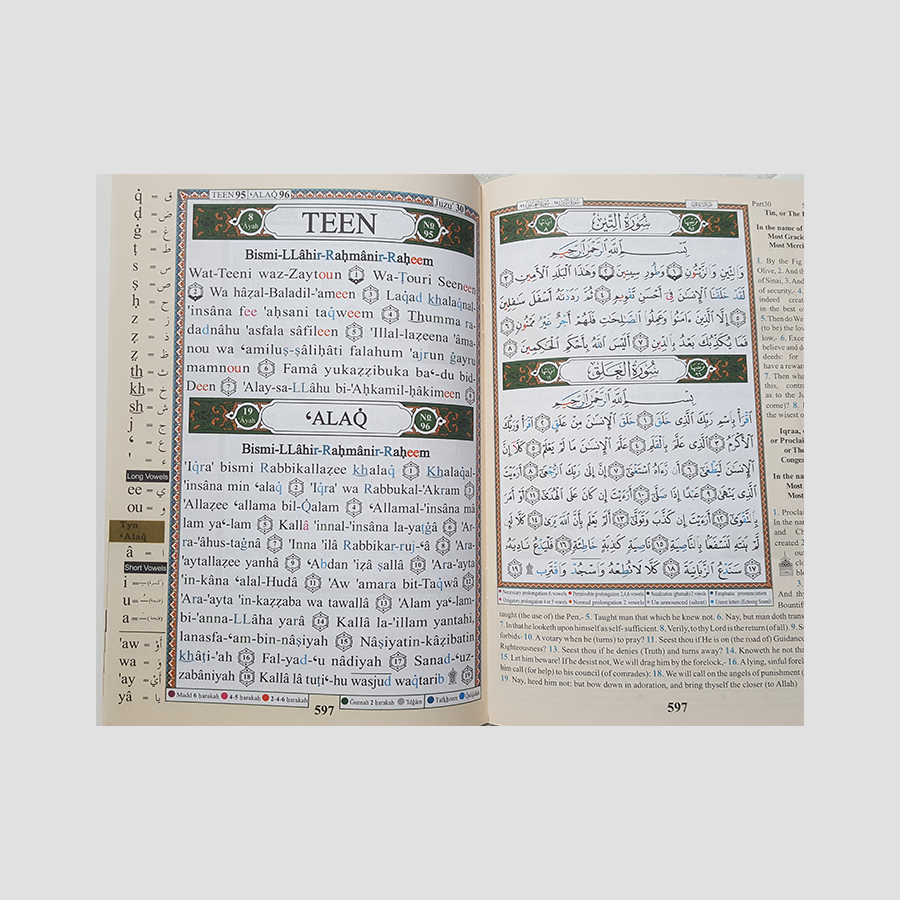 TEEN 95 | ‘ALAQ̇ 96
Juzu' 30
8 Âyah
TEEN
No 95
Bismi-LLâhir-Raḥmânir-Raḥeem
Wat-Teeni waz-Zaytoun 1 Wa-Ṭouri Seeneen
2 Wa hâẓal-Baladil-'ameen 3 Laqad khalaqnal-
'insâna fee 'aḥsani taqweem 4 Thumma ra-
dadnâhu 'asfala sâfileen 5 'Illal-laẓeena 'âma-
nou wa ‘amiluṣ-ṣâliḥâti falahum 'ajrun ġayru
mamnoun 6 Famâ yukaẓẓibuka ba‘-du bid-
Deen 7 'Alay-sa-LLâhu bi-'Aḥkamil-ḥâkimeen 8
19 Âyah
‘ALAQ̇
No 96
Bismi-LLâhir-Raḥmânir-Raḥeem
'Iqra' bismi Rabbikallaẓee khalaq 1 Khalaqal-
'insâna min ‘alaq 2 'Iqra' wa Rabbukal-'Akram 3
'Allaẓee ‘allama bil-Q̇alam 4 ‘Allamal-'insâna mâ
lam ya‘-lam 5 Kallâ 'innal-'insâna la-yaṭġâ 6 'Ar-
ra-'âhus-taġnâ 7 'Inna 'ilâ Rabbikar-ruj-‘â 8 'Ara-
'aytallaẓee yanhâ 9 ‘Abdan 'iẓâ ṣallâ 10 'Ara-'ayta
'in-kâna ‘alal-Hudâ 11 'Aw 'amara bit-Taqwâ 12
'Ara-'ayta 'in-kaẓẓaba wa tawallâ 13 'Alam ya‘-lam-
bi-'anna-LLâha yarâ 14 Kallâ la-'illam yantahi,
lanasfa-‘am-bin-nâṣiyah 15 Nâṣiyatin-kâẓibatin
khâṭi-'ah 16 Fal-yad-‘u nâdiyah 17 Sanad-‘uz-
zabâniyah 18 Kallâ lâ tuṭi‘-hu wasjud waqtarib 19
Madd 6 ḥarakah 4-5 ḥarakah 2-4-6 ḥarakah
Ġunnah 2 ḥarakah 'Idġâm Tafkheem
597
q̇ = ق
ḍ = ض
ġ = غ
ṭ = ط
ṣ = ص
ḥ = ح
z = ز
th = ث
kh = خ
sh = ش
j = ج
‘ = ع
' = ء
Long Vowels
ee = ي
ou = و
Tyn
‘Alaq̇
â = ا
Short Vowels
i =
u =
a =
'aw = أَوْ
wa = وَ
'ay = أَيْ
yâ = يَا
سُورَةُ التِّينِ
بِسْمِ اللَّهِ الرَّحْمَٰنِ الرَّحِيمِ
وَالتِّينِ وَالزَّيْتُونِ ١ وَطُورِ سِينِينَ ٢ وَهَٰذَا الْبَلَدِ الْأَمِينِ ٣
لَقَدْ خَلَقْنَا الْإِنسَٰنَ فِي أَحْسَنِ تَقْوِيمٍ ٤ ثُمَّ رَدَدْنَٰهُ أَسْفَلَ سَٰفِلِينَ
٥ إِلَّا الَّذِينَ ءَامَنُوا وَعَمِلُوا الصَّٰلِحَٰتِ فَلَهُمْ أَجْرٌ غَيْرُ مَمْنُونٍ ٦
فَمَا يُكَذِّبُكَ بَعْدُ بِالدِّينِ ٧ أَلَيْسَ اللَّهُ بِأَحْكَمِ الْحَٰكِمِينَ ٨
سُورَةُ الْعَلَقِ
بِسْمِ اللَّهِ الرَّحْمَٰنِ الرَّحِيمِ
اقْرَأْ بِاسْمِ رَبِّكَ الَّذِي خَلَقَ ١ خَلَقَ الْإِنسَٰنَ مِنْ عَلَقٍ ٢ اقْرَأْ وَرَبُّكَ
الْأَكْرَمُ ٣ الَّذِي عَلَّمَ بِالْقَلَمِ ٤ عَلَّمَ الْإِنسَٰنَ مَا لَمْ يَعْلَمْ ٥ كَلَّا إِنَّ
الْإِنسَٰنَ لَيَطْغَىٰ ٦ أَن رَّءَاهُ اسْتَغْنَىٰ ٧ إِنَّ إِلَىٰ رَبِّكَ الرُّجْعَىٰ ٨ أَرَءَيْتَ
الَّذِي يَنْهَىٰ ٩ عَبْدًا إِذَا صَلَّىٰ ١٠ أَرَءَيْتَ إِن كَانَ عَلَى الْهُدَىٰ ١١ أَوْ أَمَرَ
بِالتَّقْوَىٰ ١٢ أَرَءَيْتَ إِن كَذَّبَ وَتَوَلَّىٰ ١٣ أَلَمْ يَعْلَم بِأَنَّ اللَّهَ يَرَىٰ ١٤ كَلَّا لَئِن
لَّمْ يَنتَهِ لَنَسْفَعًا بِالنَّاصِيَةِ ١٥ نَاصِيَةٍ كَٰذِبَةٍ خَاطِئَةٍ ١٦ فَلْيَدْعُ نَادِيَهُ
١٧ سَنَدْعُ الزَّبَانِيَةَ ١٨ كَلَّا لَا تُطِعْهُ وَاسْجُدْ وَاقْتَرِب ١٩
Necessary prolongation 6 vowels Permissible prolongation 2,4,6 vowels Nazalization (ghunnah) 2 vowels Emphatic pronunciation
Obligatory prolongation 4 or 5 vowels Normal prolongation 2 vowels Un announced (silent) Unrest letters (Echoing Sound)
Part30
Tin, or The
In the name of
Most Gracie
Most Merci
1. By the Fig
Olive, 2. And th
of Sinai, 3. And
of security,- 4.
indeed creat
in the best of
5. Then do We
(to be) the low
low,- 6. Exce
believe and d
deeds: for
have a rewar
7. Then what
this, contra
as to the Ju
come)? 8. I
the wisest of
Iqraa,
or Proclai
or The
Congea
In the na
Most
Most
1. Procla
In the na
and Ch
created 2
clo
And th
Bountif
taught (the use of) the Pen,- 5. Taught man that which he knew not. 6. Nay, but man doth trans
7. In that he looketh upon himself as self-sufficient. 8. Verily, to thy Lord is the return (of all). 9. S
forbids- 10. A votary when he (turns) to pray? 11. Seest thou if He is on (the road of) Guidance
Righteousness? 13. Seest thou if he denies (Truth) and turns away? 14. Knoweth he not tha
15. Let him beware! If he desist not, We will drag him by the forelock,- 16. A lying, sinful forel
him call (for help) to his council (of comrades): 18. We will call on the angels of punishment (
19. Nay, heed him not: but bow down in adoration, and bring thyself the closer (to Allah)
597